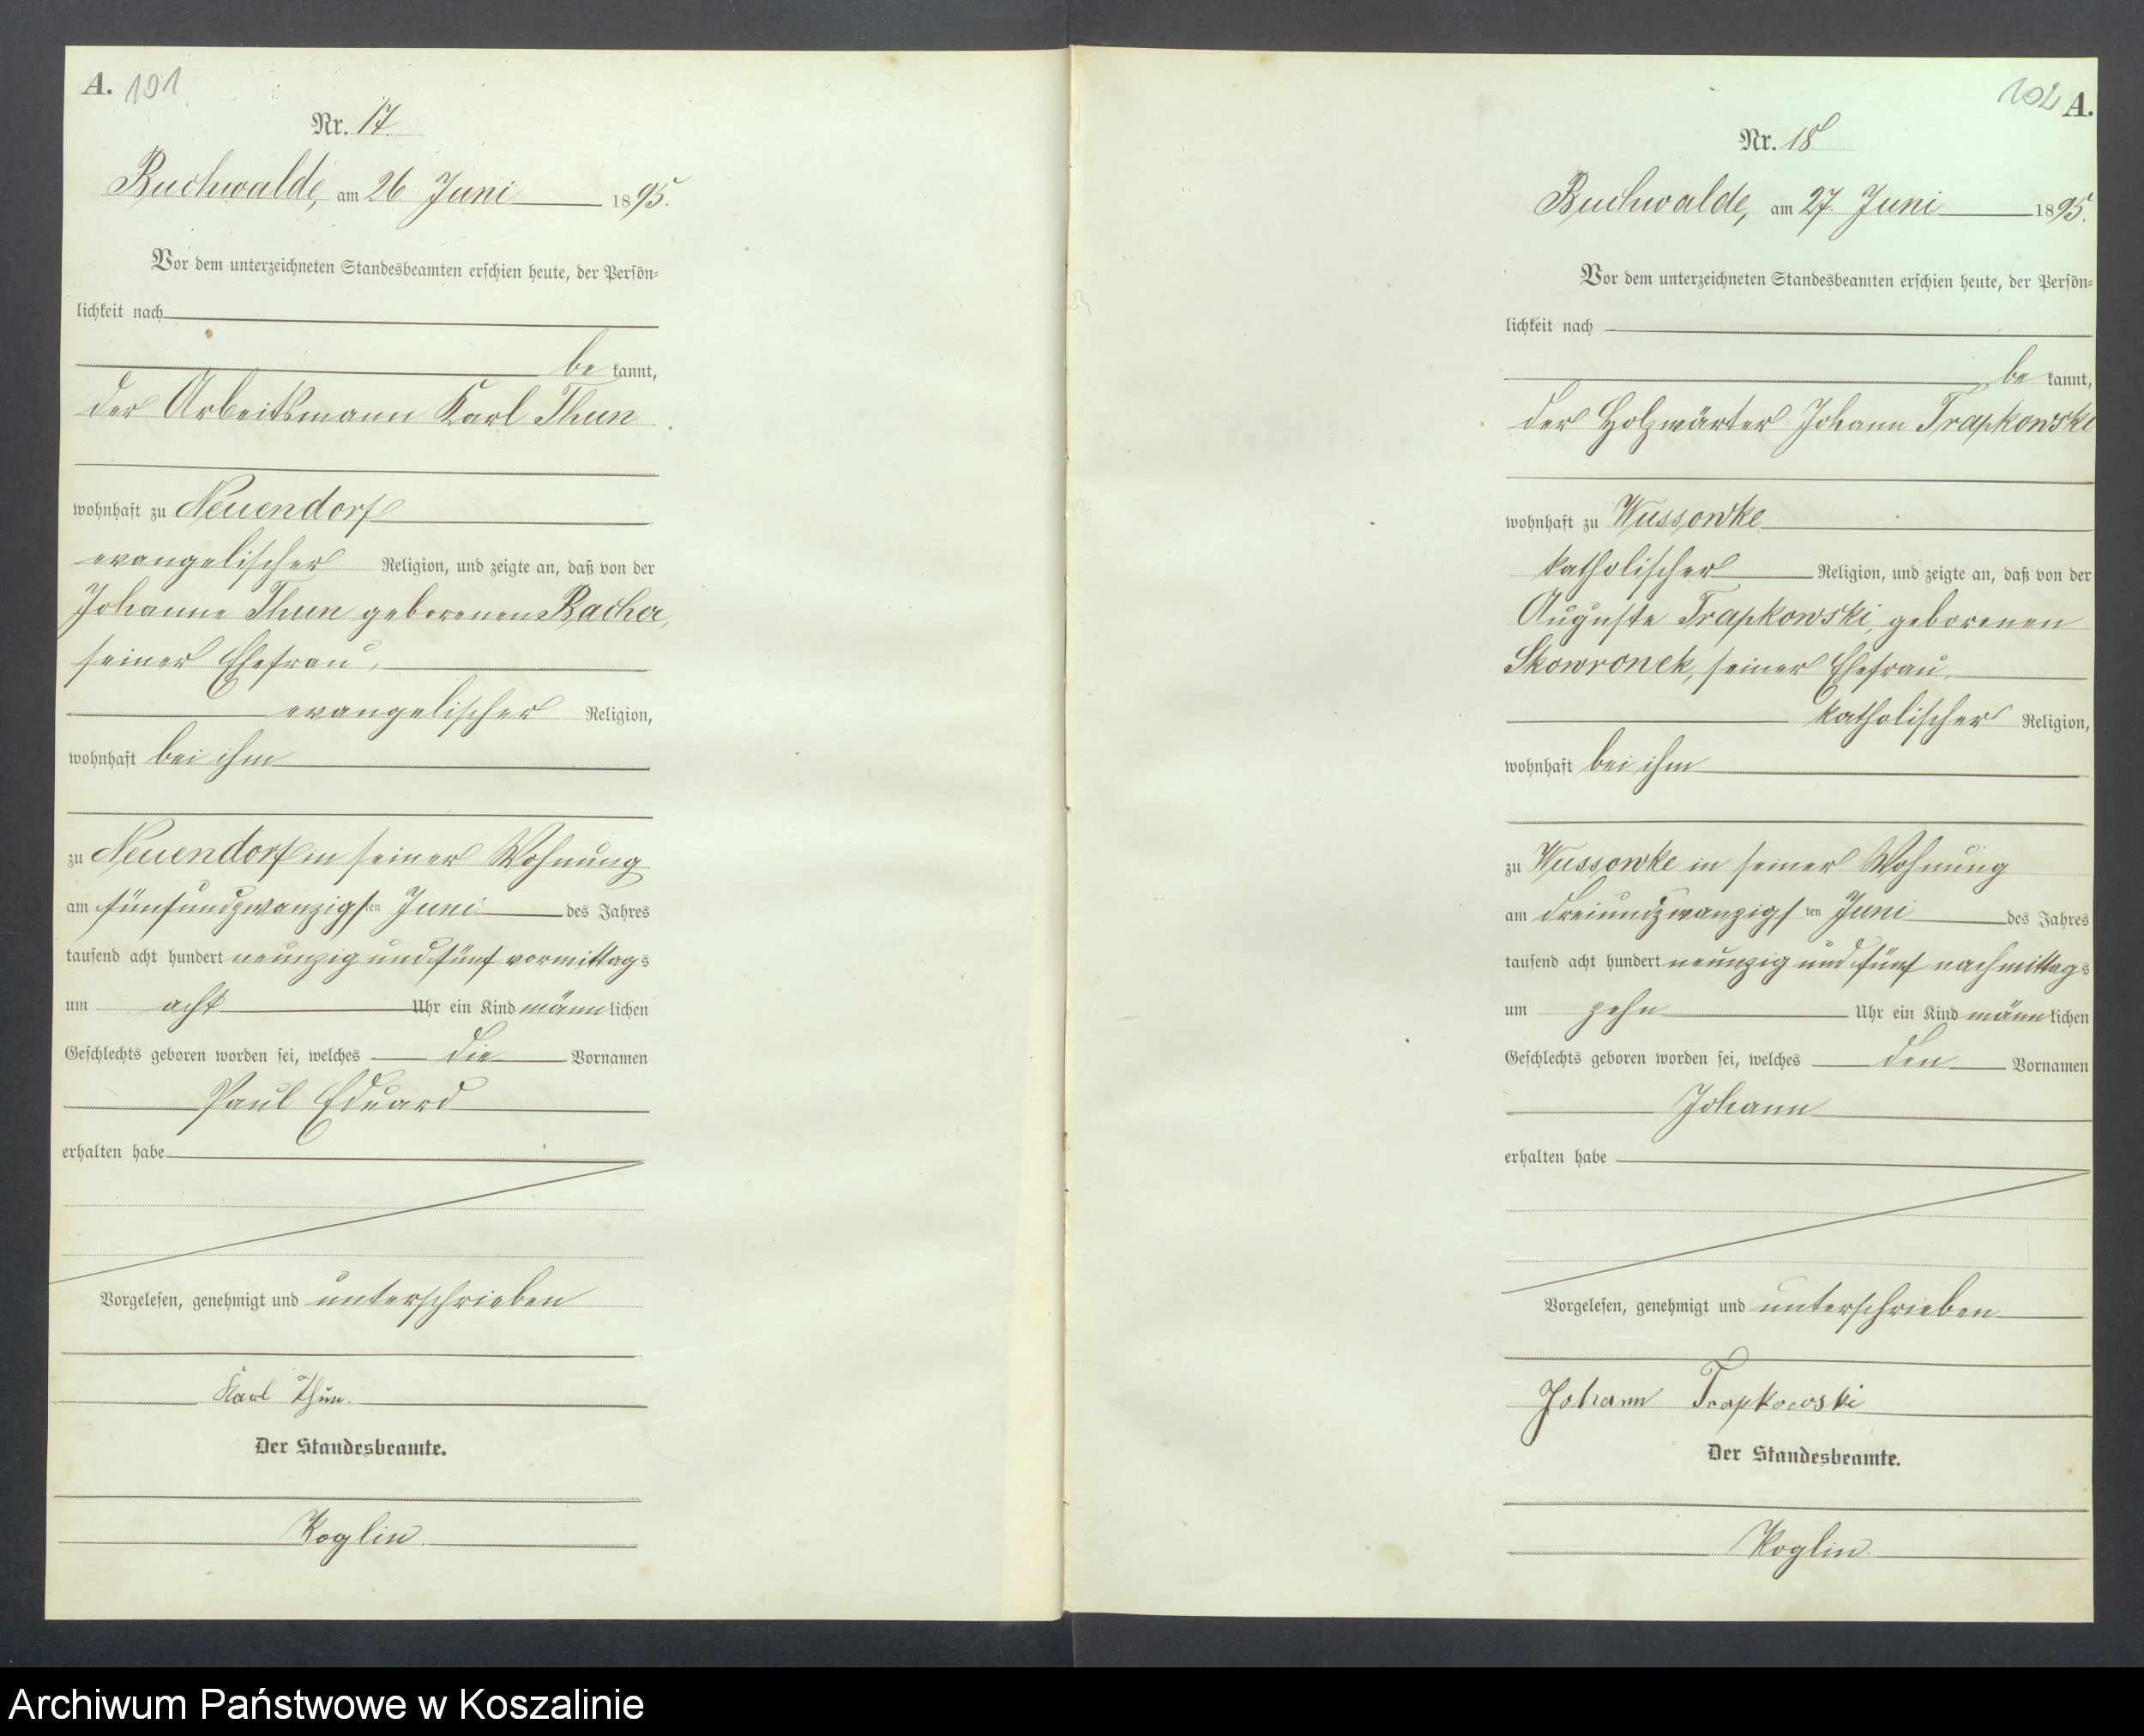 A. 101
Nr. 17.
Buchwalde, am 26 Juni 1895.
Vor dem unterzeichneten Standesbeamten erschien heute, der Persön-
lichkeit nach
be kannt,
der Arbeitsmann Karl Thun
wohnhaft zu Neuendorf
evangelischer Religion, und zeigte an, daß von der
Johanne Thun geborenen Racher,
seiner Ehefrau,
evangelischer Religion,
wohnhaft bei ihm
zu Neuendorf in seiner Wohnung
am fünfundzwanzigsten Juni des Jahres
tausend acht hundert neunzig und fünf vormittags
um acht Uhr ein Kind männlichen
Geschlechts geboren worden sei, welches die Vornamen
Paul Eduard
erhalten habe
Vorgelesen, genehmigt und unterschrieben
Karl Thun.
Der Standesbeamte.
Koglin.
102 A.
Nr. 18
Buchwalde, am 27 Juni 1895.
Vor dem unterzeichneten Standesbeamten erschien heute, der Persön-
lichkeit nach
be kannt,
der Holzwärter Johann Trapkowski
wohnhaft zu Wussowke
katholischer Religion, und zeigte an, daß von der
Auguste Trapkowski, geborenen
Skowronek, seiner Ehefrau,
katholischer Religion,
wohnhaft bei ihm
zu Wussowke in seiner Wohnung
am dreiundzwanzigsten Juni des Jahres
tausend acht hundert neunzig und fünf nachmittags
um zehn Uhr ein Kind männlichen
Geschlechts geboren worden sei, welches den Vornamen
Johann
erhalten habe
Vorgelesen, genehmigt und unterschrieben
Johann Trapkowski
Der Standesbeamte.
Koglin.
Archiwum Państwowe w Koszalinie